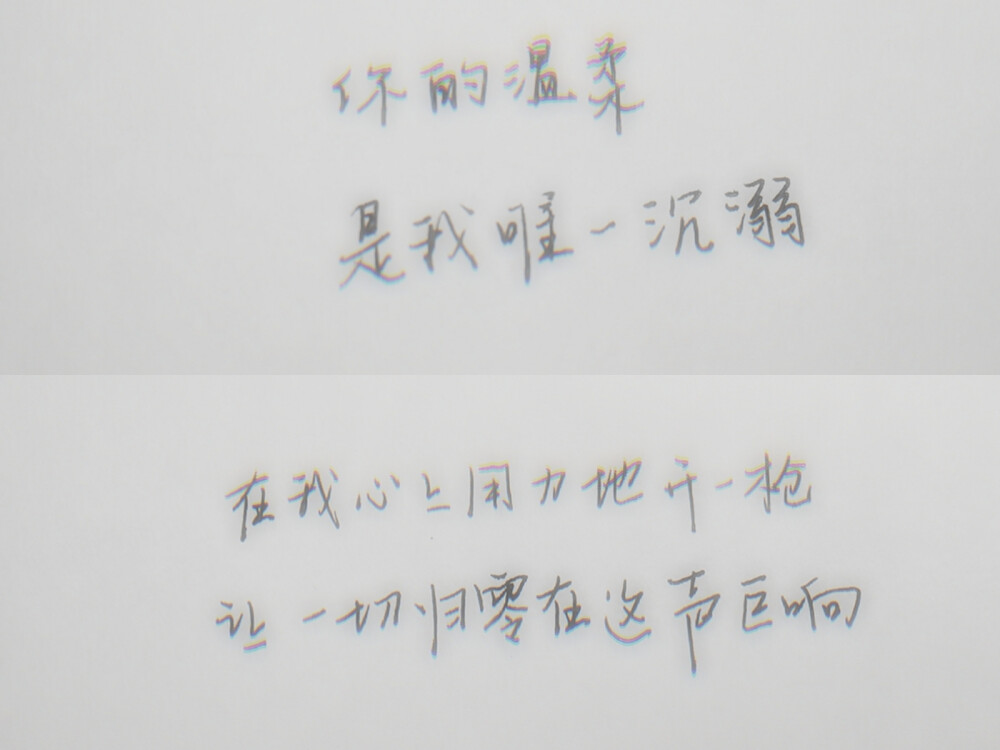 你的温柔
是我唯一沉溺
在我心上用力地开一枪
让一切归零在这声巨响